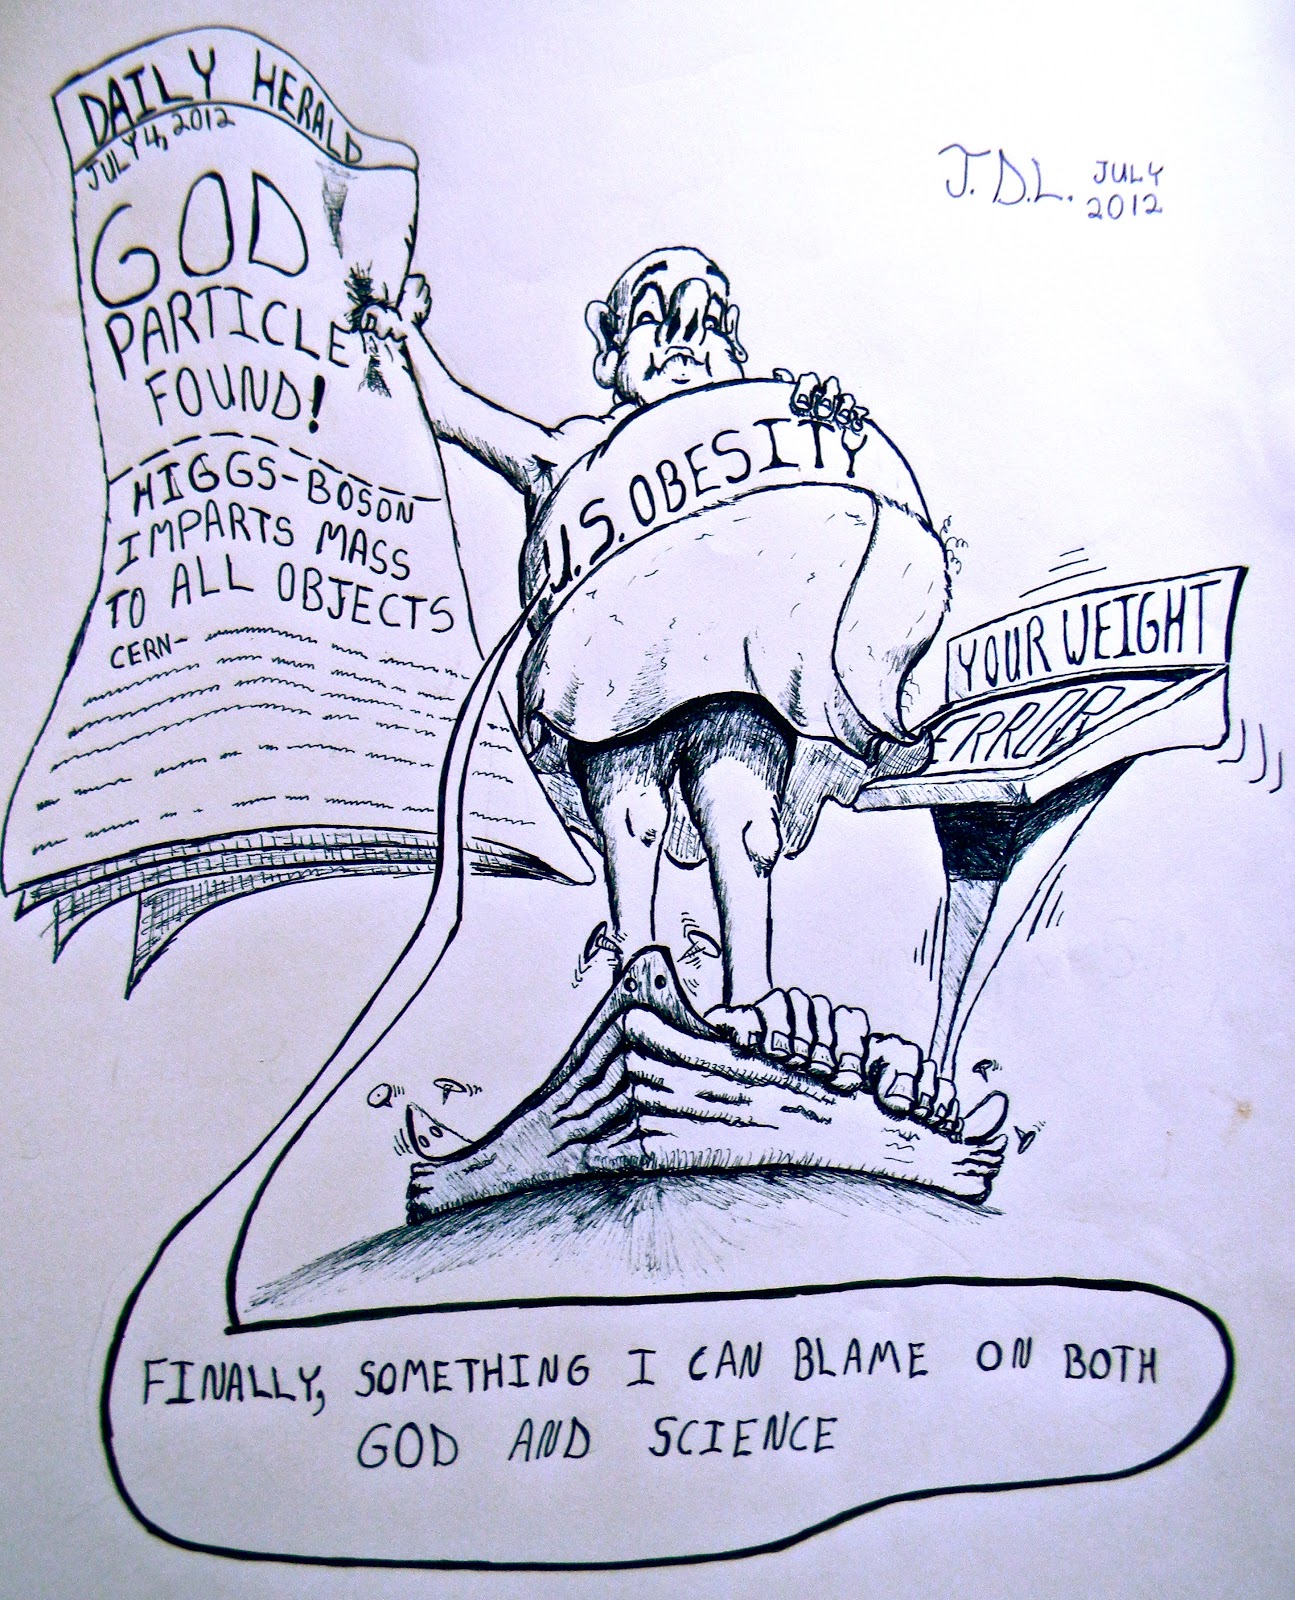 DAILY HERALD
JULY 4, 2012
GOD
PARTICLE
FOUND!
HIGGS-BOSON
IMPARTS MASS
TO ALL OBJECTS
CERN-
J.D.L. JULY
2012
U.S. OBESITY
YOUR WEIGHT
ERROR
FINALLY, SOMETHING I CAN BLAME ON BOTH
GOD AND SCIENCE